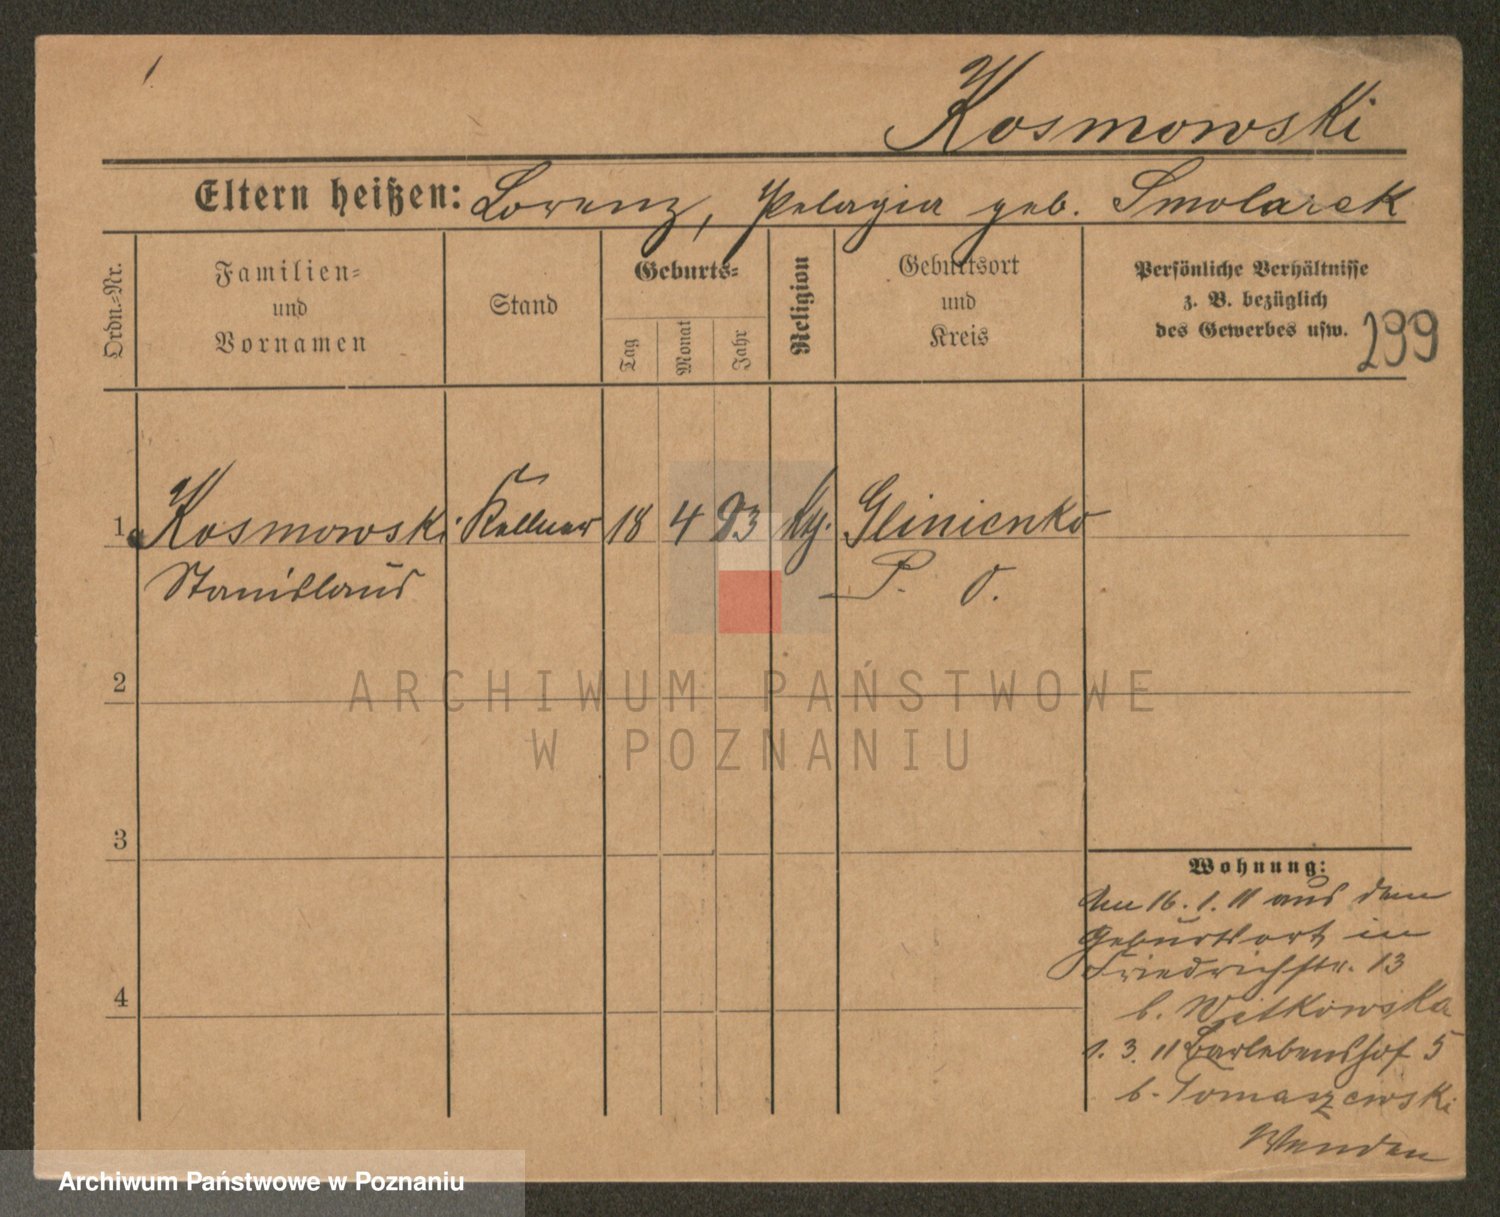 Kosmowski
Eltern heißen: Lorenz, Pelagia geb. Smolarek
Ordn.=Nr.
Familien=
und
Vornamen
Stand
Geburts=
Tag
Monat
Jahr
Religion
Geburtsort
und
Kreis
Persönliche Verhältnisse
z. B. bezüglich
des Gewerbes usw.
299
1 Kosmowski Kellner 18 4 93 kg. Glinienko
Stanislaus P. O.
2
ARCHIWUM PAŃSTWOWE
W POZNANIU
3
Wohnung:
Am 16. 1. 11 aus dem
Geburtsort in
Friedrichstr. 13
b. Witkowska
1. 3. 11 Barlebenshof 5
b. Tomaszewski
Wenden
4
Archiwum Państwowe w Poznaniu